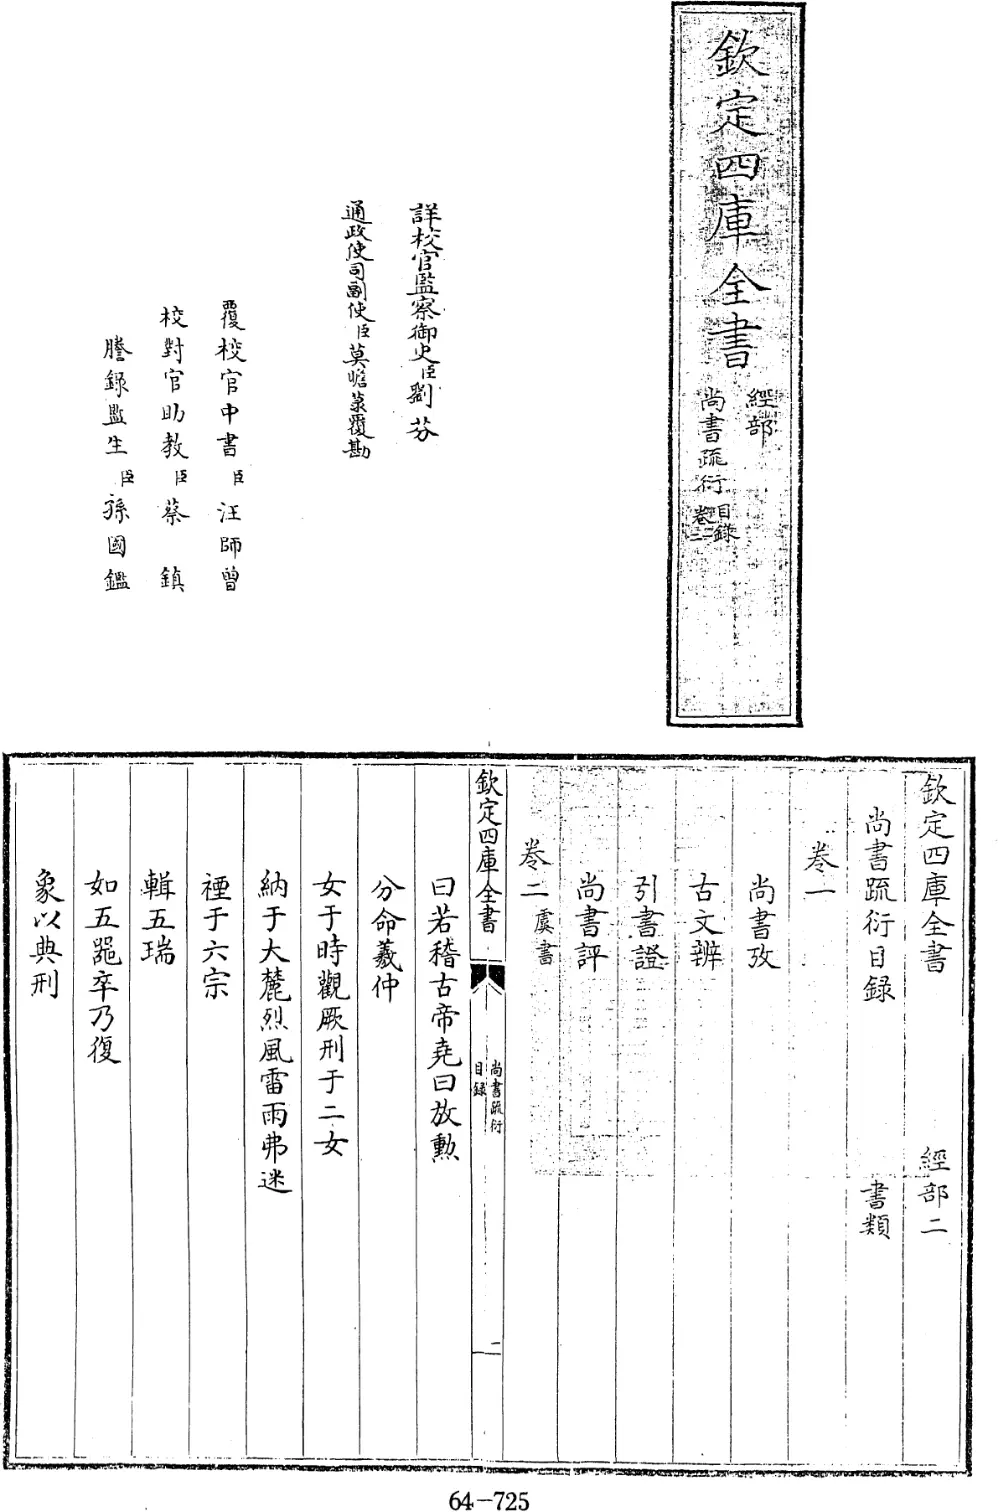 欽定四庫全書
經部
尚書疏衍
目錄
詳校官監察御史臣劉芬
通政使司副使臣莫瞻菉覆勘
覆校官中書臣汪師曾
校對官助教臣蔡鎮
謄錄監生臣孫國鑑
欽定四庫全書 經部二
尚書疏衍目錄 書類
卷一
尚書攷
古文辨
引書證
尚書評
卷二 虞書
欽定四庫全書
尚書疏衍
目錄
二
曰若稽古帝堯曰放勲
分命羲仲
女于時觀厥刑于二女
納于大麓烈風雷雨弗迷
禋于六宗
輯五瑞
如五器卒乃復
象以典刑
64-725